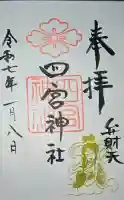 奉拝
弁財天
四宮神社
令和七年一月八日